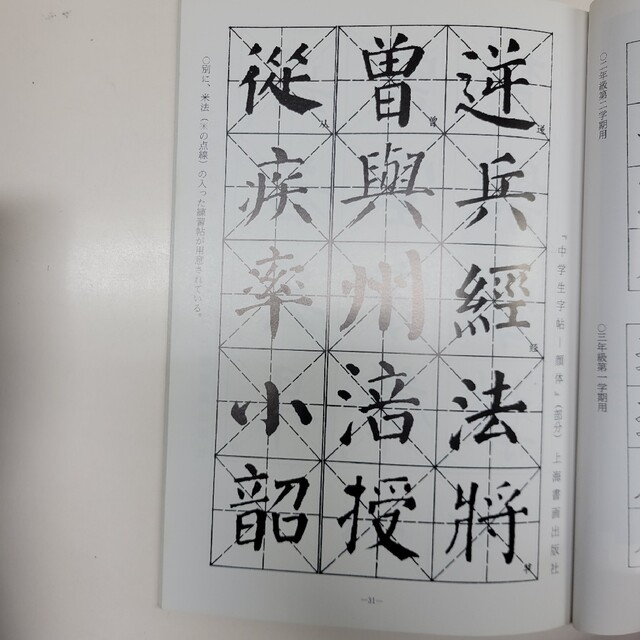 〇二年級第二学期用
〇三年級第一学期用
『中学生字帖―顔体』(部分) 上海書画出版社
逆兵經法將
逆
经
将
曾與州涪授
曾
從疾率小韶
从
〇別に、米法(※の点線)の入った練習帖が用意されている。
―31―